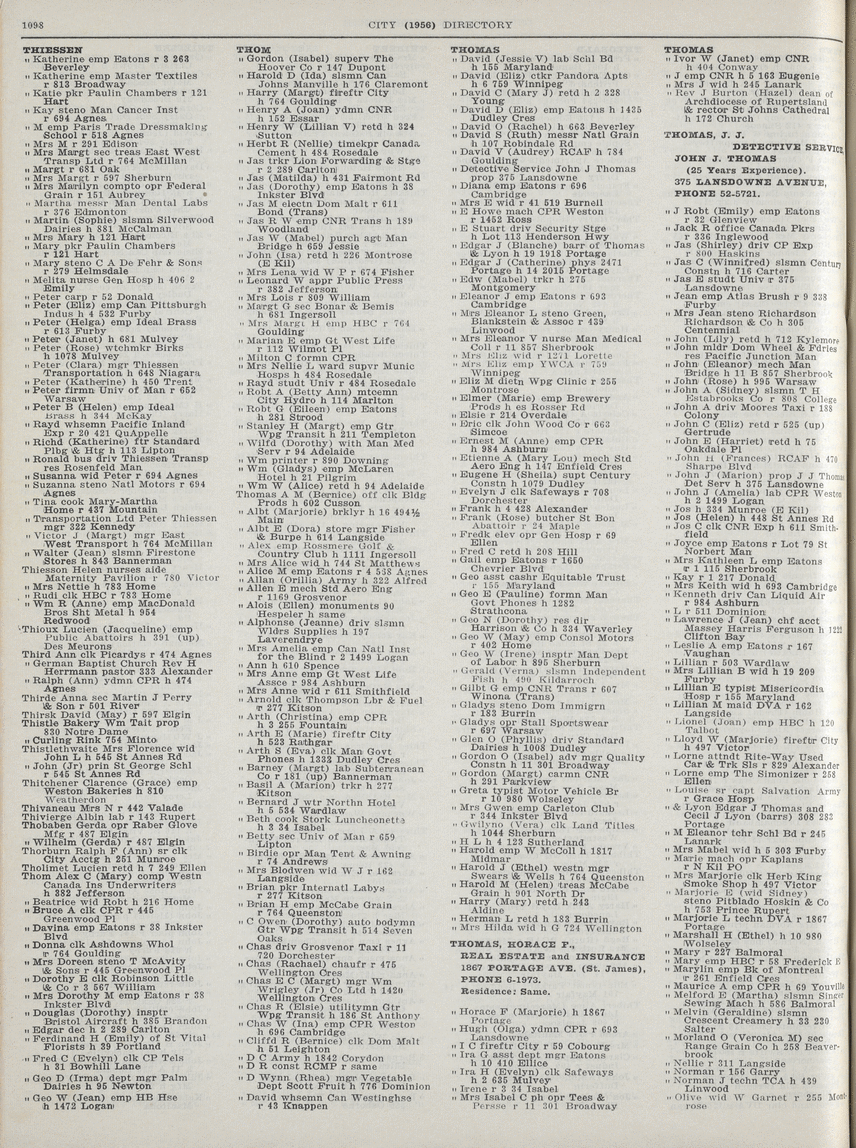 1098
CITY (1956) DIRECTORY
THIESSEN
" Katherine emp Eatons r 3 263
Beverley
" Katherine emp Master Textiles
r 813 Broadway
" Katie pkr Paulin Chambers r 121
Hart
" Kay steno Man Cancer Inst
r 694 Agnes
" M emp Paris Trade Dressmaking
School r 518 Agnes
" Mrs M r 291 Edison
" Mrs Margt sec treas East West
Transp Ltd r 764 McMillan
" Margt r 681 Oak
" Mrs Margt r 597 Sherburn
" Mrs Marilyn compto opr Federal
Grain r 151 Aubrey
" Martha messr Man Dental Labs
r 376 Edmonton
" Martin (Sophie) slsmn Silverwood
Dairies h 881 McCalman
" Mrs Mary h 121 Hart
" Mary pkr Paulin Chambers
r 121 Hart
" Mary steno C A De Fehr & Sons
r 279 Helmsdale
" Melita nurse Gen Hosp h 406 2
Emily
" Peter carp r 52 Donald
" Peter (Eliz) emp Can Pittsburgh
Indus h 4 532 Furby
" Peter (Helga) emp Ideal Brass
r 613 Furby
" Peter (Janet) h 681 Mulvey
" Peter (Rose) wtchmkr Birks
h 1078 Mulvey
" Peter (Clara) mgr Thiessen
Transportation h 648 Niagara
" Peter (Katherine) h 450 Trent
" Peter firmn Univ of Man r 652
Warsaw
" Peter B (Helen) emp Ideal
Brass h 344 McKay
" Rayd whsemn Pacific Inland
Exp r 20 421 QuAppelle
" Richd (Katherine) ftr Standard
Plbg & Htg h 113 Lipton
" Ronald bus driv Thiessen Transp
res Rosenfeld Man
" Susanna wid Peter r 694 Agnes
" Suzanna steno Natl Motors r 694
Agnes
" Tina cook Mary-Martha
Home r 437 Mountain
" Transportation Ltd Peter Thiessen
mgr 322 Kennedy
" Victor J (Margt) mgr East
West Transport h 764 McMillan
" Walter (Jean) slsmn Firestone
Stores h 843 Bannerman
Thiesson Helen nurses aide
Maternity Pavilion r 780 Victor
" Mrs Nettie h 783 Home
" Rudi clk HBC r 783 Home
" Wm R (Anne) emp MacDonald
Bros Sht Metal h 954
Redwood
Thioux Lucien (Jacqueline) emp
Public Abattoirs h 391 (up)
Des Meurons
Third Ann clk Picardys r 474 Agnes
" German Baptist Church Rev H
Herrmann pastor 333 Alexander
" Ralph (Ann) ydmn CPR h 474
Agnes
Thirde Anna sec Martin J Perry
& Son r 501 River
Thirsk David (May) r 597 Elgin
Thistle Bakery Wm Tait prop
830 Notre Dame
" Curling Rink 754 Minto
Thistlethwaite Mrs Florence wid
John L h 545 St Annes Rd
" John (Jr) prin St George Schl
r 545 St Annes Rd
Thitchener Clarence (Grace) emp
Weston Bakeries h 810
Weatherdon
Thivaneau Mrs N r 442 Valade
Thivierge Albin lab r 143 Rupert
Thobaben Gerda opr Raber Glove
Mfg r 487 Elgin
" Wilhelm (Gerda) r 487 Elgin
Thorburn Ralph F (Ann) sr clk
City Acctg h 251 Munroe
Tholimet Lucien retd h 7 249 Ellen
Thom Alex C (Mary) comp Westn
Canada Ins Underwriters
h 382 Jefferson
" Beatrice wid Robt h 216 Home
" Bruce A clk CPR r 445
Greenwood Pl
" Davina emp Eatons r 38 Inkster
Blvd
" Donna clk Ashdowns Whol
r 764 Goulding
" Mrs Doreen steno T McAvity
& Sons r 445 Greenwood Pl
" Dorothy E clk Robinson Little
& Co r 3 567 William
" Mrs Dorothy M emp Eatons r 38
Inkster Blvd
" Douglas (Dorothy) insptr
Bristol Aircraft h 385 Brandon
" Edgar dec h 2 289 Carlton
" Ferdinand H (Emily) of St Vital
Florists h 39 Portland
" Fred C (Evelyn) clk CP Tels
h 31 Bowhill Lane
" Geo D (Irma) dept mgr Palm
Dairies h 95 Newton
" Geo W (Jean) emp HB Hse
h 1472 Logan
THOM
" Gordon (Isabel) superv The
Hoover Co r 147 Dupont
" Harold D (Ida) slsmn Can
Johns Manville h 176 Claremont
" Harry (Margt) fireftr City
h 764 Goulding
" Henry A (Joan) ydmn CNR
h 152 Essar
" Henry W (Lillian V) retd h 324
Sutton
" Herbt R (Nellie) timekpr Canada
Cement h 484 Rosedale
" Jas trkr Lion Forwarding & Stge
r 2 289 Carlton
" Jas (Matilda) h 431 Fairmont Rd
" Jas (Dorothy) emp Eatons h 38
Inkster Blvd
" Jas M electn Dom Malt r 611
Bond (Trans)
" Jas R W emp CNR Trans h 189
Woodland
" Jas W (Mabel) purch agt Man
Bridge h 659 Jessie
" John (Isa) retd h 226 Montrose
(E Kil)
" Mrs Lena wid W P r 674 Fisher
" Leonard W appr Public Press
r 382 Jefferson
" Mrs Lois r 809 William
" Margt G sec Bonar & Bemis
h 681 Ingersoll
" Mrs Margt H emp HBC r 764
Goulding
" Marian E emp Gt West Life
r 112 Wilmot Pl
" Milton C formn CPR
" Mrs Nellie L ward suprv Munic
Hosps h 484 Rosedale
" Rayd studt Univ r 484 Rosedale
" Robt A (Betty Ann) mtcemn
City Hydro h 114 Marlton
" Robt G (Eileen) emp Eatons
h 281 Strood
" Stanley H (Margt) emp Gtr
Wpg Transit h 211 Templeton
" Wilfd (Dorothy) with Man Med
Serv r 94 Adelaide
" Wm printer r 890 Downing
" Wm (Gladys) emp McLaren
Hotel h 21 Pilgrim
" Wm W (Alice) retd h 94 Adelaide
Thomas A M (Bernice) off clk Bldg
Prods h 602 Cusson
" Albt (Marjorie) brklyr h 16 494½
Main
" Albt E (Dora) store mgr Fisher
& Burpe h 614 Langside
" Alex emp Rossmere Golf &
Country Club h 1111 Ingersoll
" Mrs Alice wid h 744 St Matthews
" Alice M emp Eatons r 4 568 Agnes
" Allan (Orillia) Army h 322 Alfred
" Allen E mech Std Aero Eng
r 1169 Grosvenor
" Alois (Ellen) monuments 90
Hespeler h same
" Alphonse (Jeanne) driv slsmn
Wldrs Supplies h 197
Laverendrye
" Mrs Amelia emp Can Natl Inst
for the Blind r 2 1499 Logan
" Ann h 610 Spence
" Mrs Anne emp Gt West Life
Assce r 984 Ashburn
" Mrs Anne wid r 611 Smithfield
" Arnold clk Thompson Lbr & Fuel
r 277 Kitson
" Arth (Christina) emp CPR
h 3 255 Fountain
" Arth E (Marie) fireftr City
h 523 Rathgar
" Arth S (Eva) clk Man Govt
Phones h 1333 Dudley Cres
" Barney (Margt) lab Subterranean
Co r 181 (up) Bannerman
" Basil A (Marion) trkr h 277
Kitson
" Bernard J wtr Northn Hotel
h 5 534 Wardlaw
" Beth cook Stork Luncheonette
h 3 34 Isabel
" Betty sec Univ of Man r 659
Lipton
" Birdie opr Man Tent & Awning
r 74 Andrews
" Mrs Blodwen wid W J r 162
Langside
" Brian pkr Internatl Labys
r 277 Kitson
" Brian H emp McCabe Grain
r 764 Queenston
" C Owen (Dorothy) auto bodymn
Gtr Wpg Transit h 514 Seven
Oaks
" Chas driv Grosvenor Taxi r 11
720 Dorchester
" Chas (Rachael) chaufr r 475
Wellington Cres
" Chas E C (Margt) mgr Wm
Wrigley (Jr) Co Ltd h 1420
Wellington Cres
" Chas R (Elsie) utilitymn Gtr
Wpg Transit h 186 St Anthony
" Chas W (Ina) emp CPR Weston
h 696 Cambridge
" Cliffd R (Bernice) clk Dom Malt
h 51 Leighton
" D C Army h 1842 Corydon
" D R const RCMP r same
" D Wynn (Rhea) mgr Vegetable
Dept Scott Fruit h 776 Dominion
" David whsemn Can Westinghse
r 43 Knappen
THOMAS
" David (Jessie V) lab Schl Bd
h 155 Maryland
" David (Eliz) ctkr Pandora Apts
h 6 759 Winnipeg
" David C (Mary J) retd h 328
Young
" David D (Eliz) emp Eatons h 1435
Dudley Cres
" David O (Rachel) h 663 Beverley
" David S (Ruth) messr Natl Grain
h 107 Robindale Rd
" David V (Audrey) RCAF h 784
Goulding
" Detective Service John J Thomas
prop 375 Lansdowne
" Diana emp Eatons r 696
Cambridge
" Mrs E wid r 41 519 Burnell
" E Howe mach CPR Weston
r 1452 Ross
" E Stuart driv Security Stge
h Lot 113 Henderson Hwy
" Edgar J (Blanche) barr of Thomas
& Lyon h 19 1918 Portage
" Edgar J (Catherine) phys 2471
Portage h 14 2015 Portage
" Edw (Mabel) trkr h 275
Montgomery
" Eleanor J emp Eatons r 693
Cambridge
" Mrs Eleanor L steno Green,
Blankstein & Assoc r 439
Linwood
" Mrs Eleanor V nurse Man Medical
Coll r 11 857 Sherbrook
" Mrs Eliz wid r 1271 Lorette
" Mrs Eliz emp YWCA r 759
Winnipeg
" Eliz M dietn Wpg Clinic r 255
Montrose
" Elmer (Marie) emp Brewery
Prods h es Rosser Rd
" Elsie r 214 Overdale
" Eric clk John Wood Co r 663
Simcoe
" Ernest M (Anne) emp CPR
h 984 Ashburn
" Etienne A (Mary Lou) mech Std
Aero Eng h 147 Enfield Cres
" Eugene H (Sheila) supt Century
Constn h 1079 Dudley
" Evelyn J clk Safeways r 708
Dorchester
" Frank h 4 428 Alexander
" Frank (Rose) butcher St Bon
Abattoir r 24 Maple
" Fredk elev opr Gen Hosp r 69
Ellen
" Fred C retd h 208 Hill
" Gail emp Eatons r 1650
Chevrier Blvd
" Geo asst cashr Equitable Trust
r 155 Maryland
" Geo E (Pauline) formn Man
Govt Phones h 1282
Strathcona
" Geo N (Dorothy) res dir
Harrison & Co h 334 Waverley
" Geo W (May) emp Consol Motors
r 402 Home
" Geo W (Irene) insptr Man Dept
of Labor h 895 Sherburn
" Gerald (Verna) slsmn Independent
Fish h 490 Kildarroch
" Gilbt G emp CNR Trans r 607
Winona (Trans)
" Gladys steno Dom Immigrn
r 183 Burrin
" Gladys opr Stall Sportswear
r 697 Warsaw
" Glen O (Phyllis) driv Standard
Dairies h 1008 Dudley
" Gordon O (Isabel) adv mgr Quality
Constn h 11 301 Broadway
" Gordon (Margt) carmn CNR
h 291 Parkview
" Greta typist Motor Vehicle Br
r 10 980 Wolseley
" Mrs Gwen emp Carleton Club
r 344 Inkster Blvd
" Gwilyno (Vera) clk Land Titles
h 1044 Sherburn
" H L h 4 123 Sutherland
" Harold emp W McColl h 1817
Midmar
" Harold J (Ethel) westn mgr
Swears & Wells h 764 Queenston
" Harold M (Helen) treas McCabe
Grain h 901 North Dr
" Harry (Mary) retd h 243
Aldine
" Herman L retd h 183 Burrin
" Mrs Hilda wid h G 724 Wellington
THOMAS, HORACE F.,
REAL ESTATE and INSURANCE
1867 PORTAGE AVE. (St. James),
PHONE 6-1973.
Residence: Same.
" Horace F (Marjorie) h 1867
Portage
" Hugh (Olga) ydmn CPR r 693
Lansdowne
" I C fireftr City r 59 Cobourg
" Ira G asst dept mgr Eatons
h 10 410 Ellice
" Ira H (Evelyn) clk Safeways
h 2 635 Mulvey
" Irene r 3 34 Isabel
" Mrs Isabel C ph opr Tees &
Persse r 11 301 Broadway
THOMAS
" Ivor W (Janet) emp CNR
h 404 Conway
" J emp CNR h 5 163 Eugenie
" Mrs J wid h 245 Lanark
" Rev J Burton (Hazel) dean of
Archdiocese of Rupertsland
& rector St Johns Cathedral
h 172 Church
THOMAS, J. J.
DETECTIVE SERVICE,
JOHN J. THOMAS
(25 Years Experience).
375 LANSDOWNE AVENUE,
PHONE 52-5721.
" J Robt (Emily) emp Eatons
r 32 Glenview
" Jack R office Canada Pkrs
r 336 Inglewood
" Jas (Shirley) driv CP Exp
r 800 Haskins
" Jas C (Winnifred) slsmn Century
Constn h 716 Carter
" Jas E studt Univ r 375
Lansdowne
" Jean emp Atlas Brush r 9 333
Furby
" Mrs Jean steno Richardson
Richardson & Co h 305
Centennial
" John (Lily) retd h 712 Kylemore
" John mldr Dom Wheel & Fdries
res Pacific Junction Man
" John (Eleanor) mech Man
Bridge h 11 B 857 Sherbrook
" John (Rose) h 995 Warsaw
" John A (Sidney) slsmn T H
Estabrooks Co r 808 College
" John A driv Moores Taxi r 188
Colony
" John C (Eliz) retd r 525 (up)
Gertrude
" John E (Harriet) retd h 75
Oakdale Pl
" John H (Frances) RCAF h 470
Sharpe Blvd
" John J (Marion) prop J J Thomas
Det Serv h 375 Lansdowne
" John J (Amelia) lab CPR Weston
h 2 1499 Logan
" Jos h 334 Munroe (E Kil)
" Jos (Helen) h 448 St Annes Rd
" Jos C clk CNR Exp h 611 Smith-
field
" Joyce emp Eatons r Lot 79 St
Norbert Man
" Mrs Kathleen L emp Eatons
r 1 115 Sherbrook
" Kay r 1 217 Donald
" Mrs Keith wid h 693 Cambridge
" Kenneth driv Can Liquid Air
r 984 Ashburn
" L r 511 Dominion
" Lawrence J (Jean) chf acct
Massey Harris Ferguson h 1221
Clifton Bay
" Leslie A emp Eatons r 167
Vaughan
" Lillian r 503 Wardlaw
" Mrs Lillian B wid h 19 209
Furby
" Lillian E typist Misericordia
Hosp r 155 Maryland
" Lillian M maid DVA r 162
Langside
" Lionel (Joan) emp HBC h 120
Talbot
" Lloyd W (Marjorie) fireftr City
h 497 Victor
" Lorne attndt Rite-Way Used
Car & Trk Sls r 829 Alexander
" Lorne emp The Simonizer r 258
Ellen
" Louise sr capt Salvation Army
r Grace Hosp
" & Lyon Edgar J Thomas and
Cecil J Lyon (barrs) 308 283
Portage
" M Eleanor tchr Schl Bd r 245
Lanark
" Mrs Mabel wid h 5 303 Furby
" Marie mach opr Kaplans
r N Kil PO
" Mrs Marjorie clk Herb King
Smoke Shop h 497 Victor
" Marjorie E (wid Sidney)
steno Pitblado Hoskin & Co
h 753 Prince Rupert
" Marjorie L techn DVA r 1867
Portage
" Marshall H (Ethel) h 10 980
Wolseley
" Mary r 227 Balmoral
" Mary emp HBC r 58 Frederick E
" Marylin emp Bk of Montreal
r 261 Enfield Cres
" Maurice A emp CPR h 69 Youville
" Melford E (Martha) slsmn Singer
Sewing Mach h 586 Balmoral
" Melvin (Geraldine) slsmn
Crescent Creamery h 33 230
Salter
" Morland O (Veronica M) sec
Range Grain Co h 258 Beaver-
brook
" Nellie r 311 Langside
" Norman r 156 Garry
" Norman J techn TCA h 439
Linwood
" Olive wid W Garnet r 255 Mont-
rose